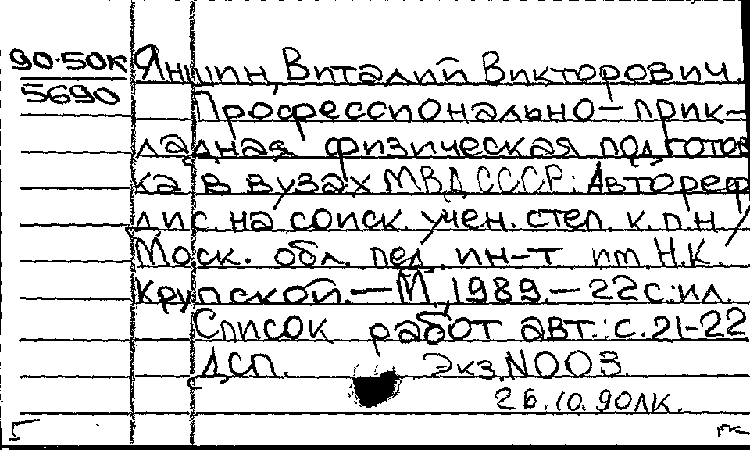 90-50к Яншин, Виталий Викторович.
5690 Профессионально-прик-
ладная физическая подготов
ка в вузах МВД СССР: Автореф
дис на соиск учен. степ. к.п.н /
Моск. обл. пед. ин-т им. Н.К.
Крупской.—М, 1989.—22с.:ил.
Список работ авт.: с.21-22
ДСП. Экз.N003.
26.10.90ЛК.
5 гк